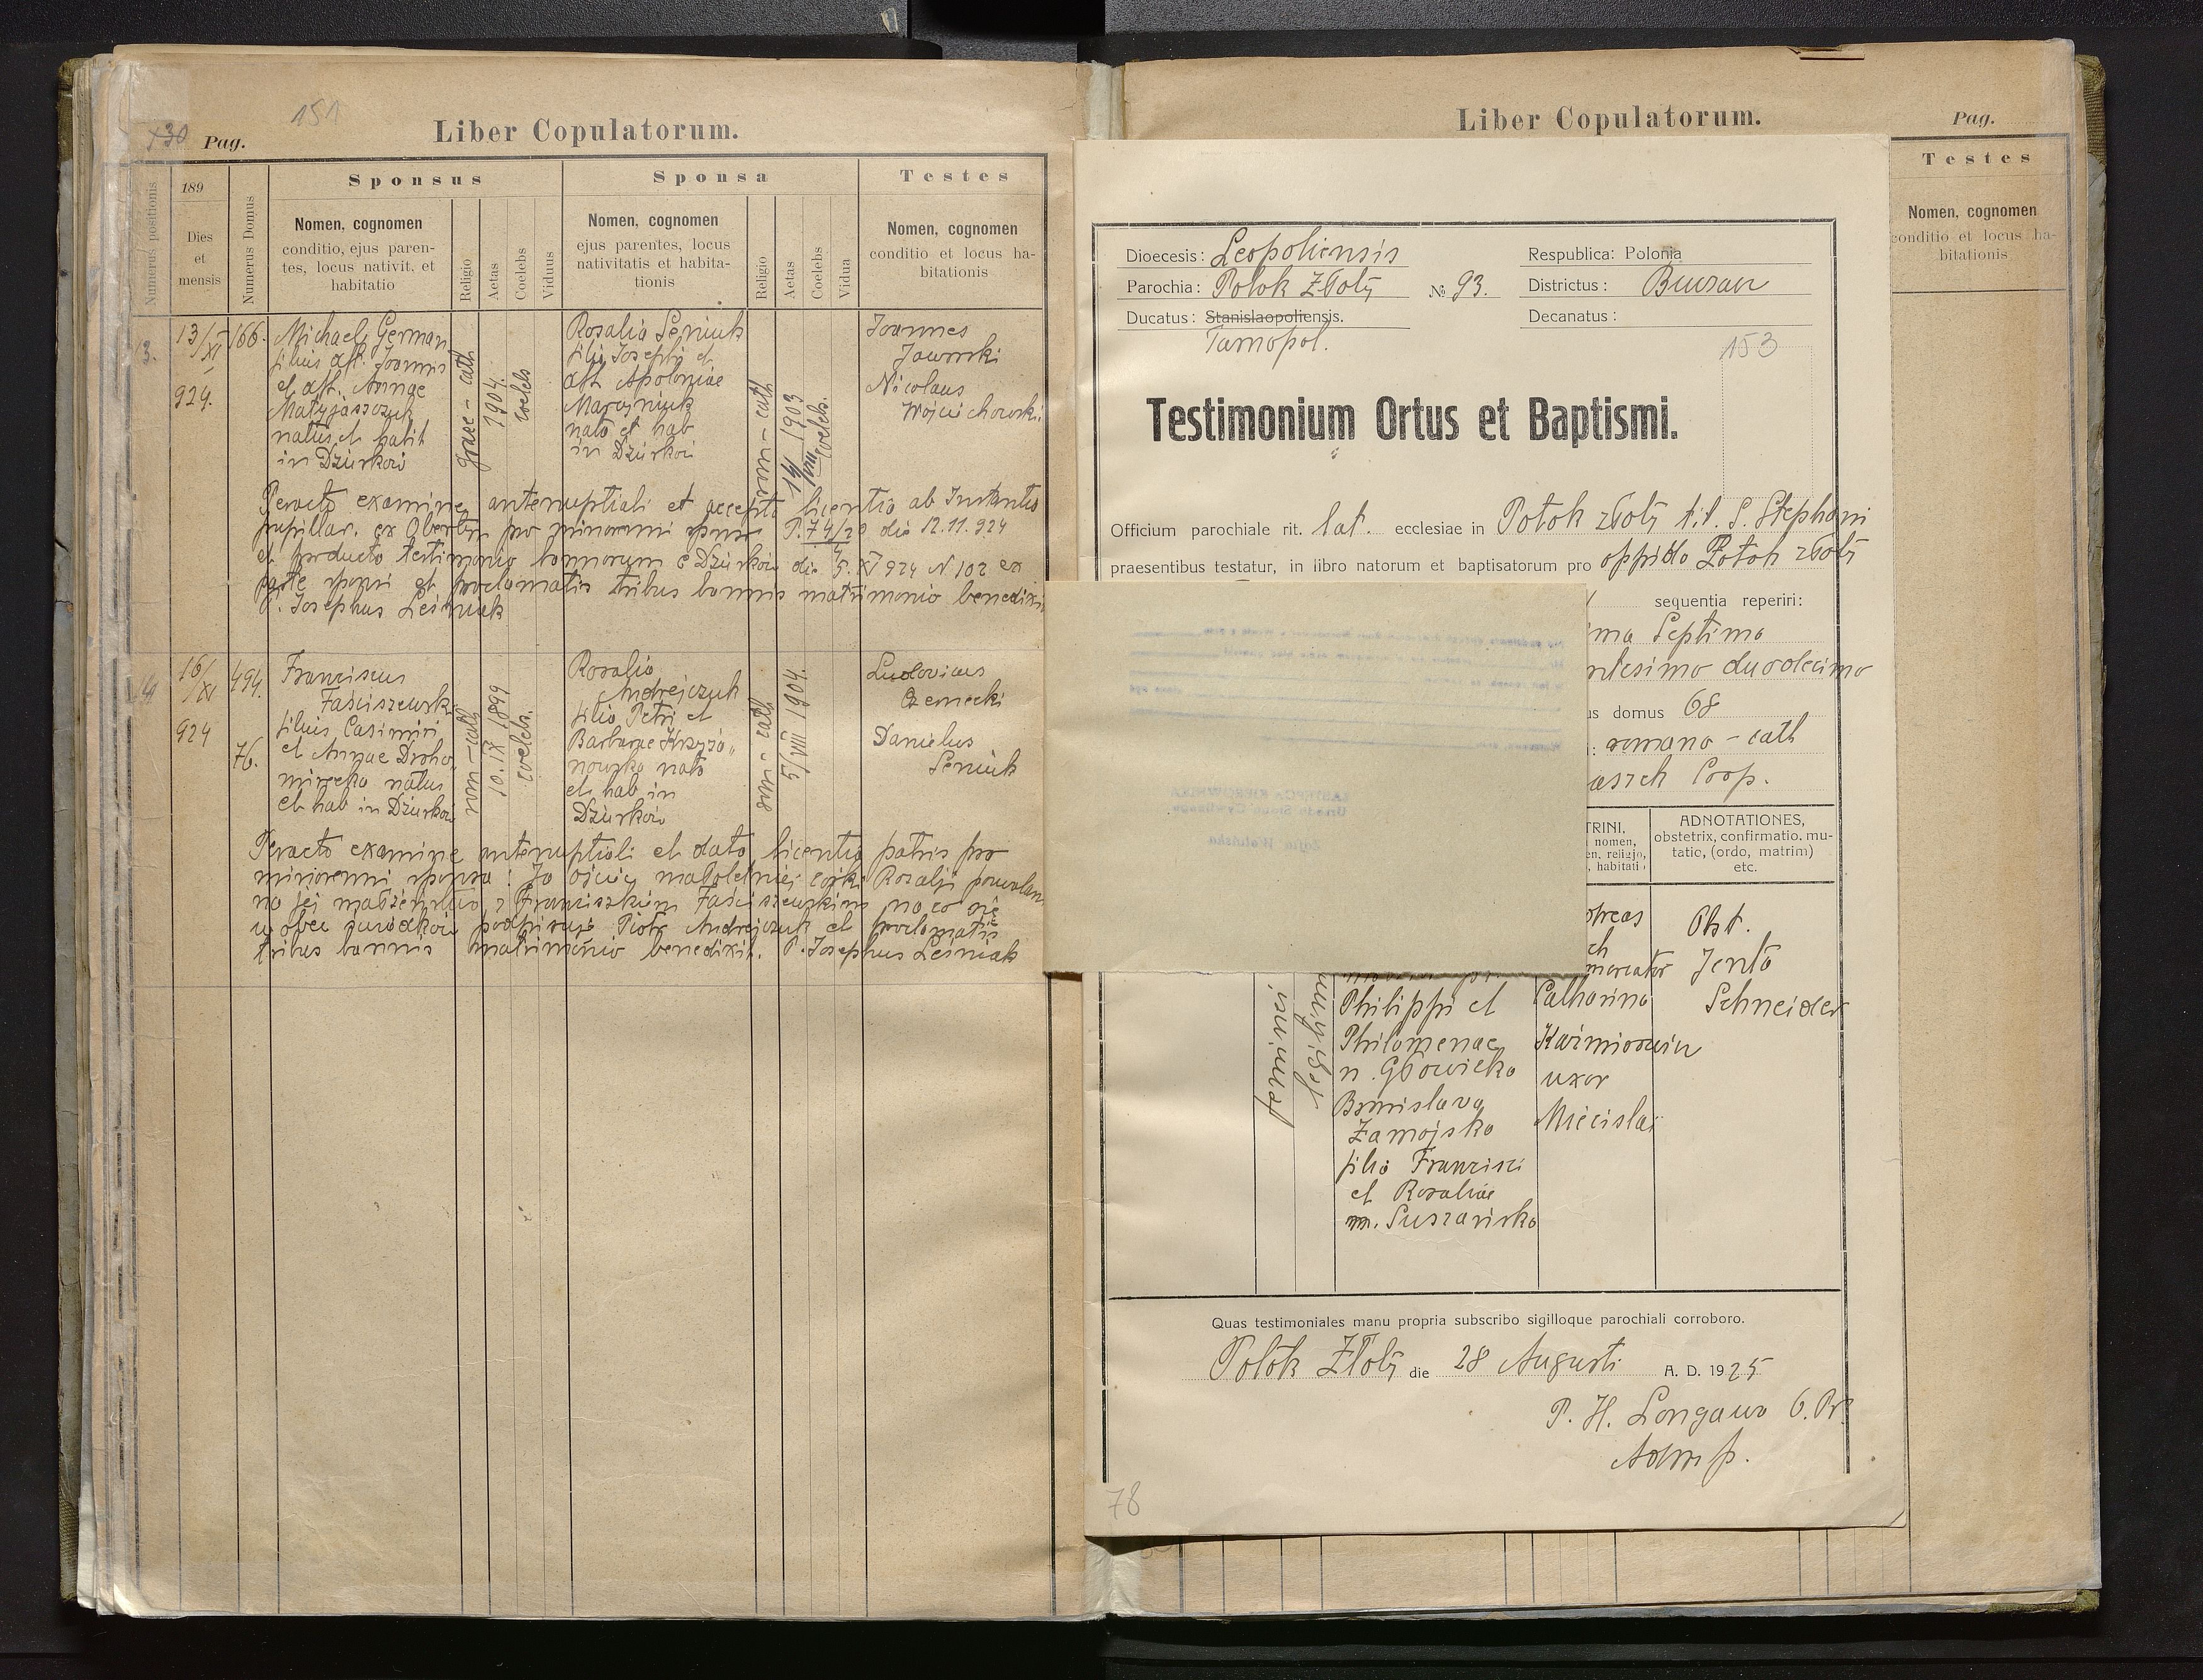 151
130 Pag.
Liber Copulatorum.
Numerus positionis
189
Dies
et
mensis
Numerus Domus
Sponsus
Nomen, cognomen
conditio, ejus paren-
tes, locus nativit. et
habitatio
Religio
Aetas
Coelebs
Viduus
Sponsa
Nomen, cognomen
ejus parentes, locus
nativitatis et habita-
tionis
Religio
Aetas
Coelebs
Vidua
Testes
Nomen, cognomen
conditio et locus ha-
bitationis
13.
13/XI
924.
166.
Michael German
filius Joannis
et Annae
Matyjaszczuk
natus et habit
in Dżurków
graec-cath
1904.
coelebs
Rosalia Seniuk
filia Josephi et
Apoloniae
nata et hab
in Dżurków
rom-cath
14/VIII 1903
coelebs.
Joannes
Jaworski
Nicolaus
Wojciechowski
Peracto examine antenuptiali et accepta licentia ab Instantia
pupillar. ex Obertyn pro minorenni sponso die 12.11.924
et producto testimonio bannorum e Dżurków die 5.XI 924 N 102 ex
parte sponsi et proclamatis tribus bannis matrimonio benedixit
P. Josephus Leśniak
14
16/XI
924
494.
76.
Franciscus
Faściszewski
filius Casimiri
et Annae Droho-
mirecka natus
et hab in Dżurków
rom-cath
10.IX 1899
coelebs.
Rosalia
Andrejczuk
filia Petri et
Barbarae Krzyża-
nowska nata
et hab in
Dżurków
rom-cath
5/VIII 1904.
Ludovicus
Danielus
Seniuk
Peracto examine antenuptiali et data licentia patris pro
minorenni sponsa: Ja ojciec małoletniej córki Rozalji pozwalam
na jej małżeństwo z Franciszkiem Faściszewskim na co się
wobec świadków podpisuję Piotr Andrejczuk et proclamatis
tribus bannis matrimonio benedixit. P. Josephus Leśniak
Liber Copulatorum.
Pag.
Testes
Nomen, cognomen
conditio et locus ha-
bitationis
Dioecesis: Leopoliensis
Respublica: Polonia
Parochia: Potok Złoty № 93.
Districtus: Buczacz
Ducatus: Stanislaopoliensis.
Decanatus:
Tarnopol.
153
Testimonium Ortus et Baptismi.
Officium parochiale rit. lat. ecclesiae in Potok złoty tit. S. Stephani
praesentibus testatur, in libro natorum et baptisatorum pro oppido Potok złoty
sequentia reperiri:
ima Septima
ntesimo duodecimo
us domus 68
: romano-cath
aszek Coop.
TRINI,
nomen,
en, religio,
, habitati
ADNOTATIONES,
obstetrix, confirmatio, mu-
tatio, (ordo, matrim)
etc.
dreas
ch
mercator
Catharina
Kaźmirowicz
uxor
Miecislai
Obst.
Jenta
Schneider
feminei
legitimi
Philippi et
Philomenae
n. Głowicka
Bronislava
Zamojska
filia Francisci
et Rosaliae
n. Suszańska
Quas testimoniales manu propria subscribo sigilloque parochiali corroboro.
Potok Złoty die 28 Augusti A. D. 1925
P. H. Longawa O. Pr.
Adm p.
78